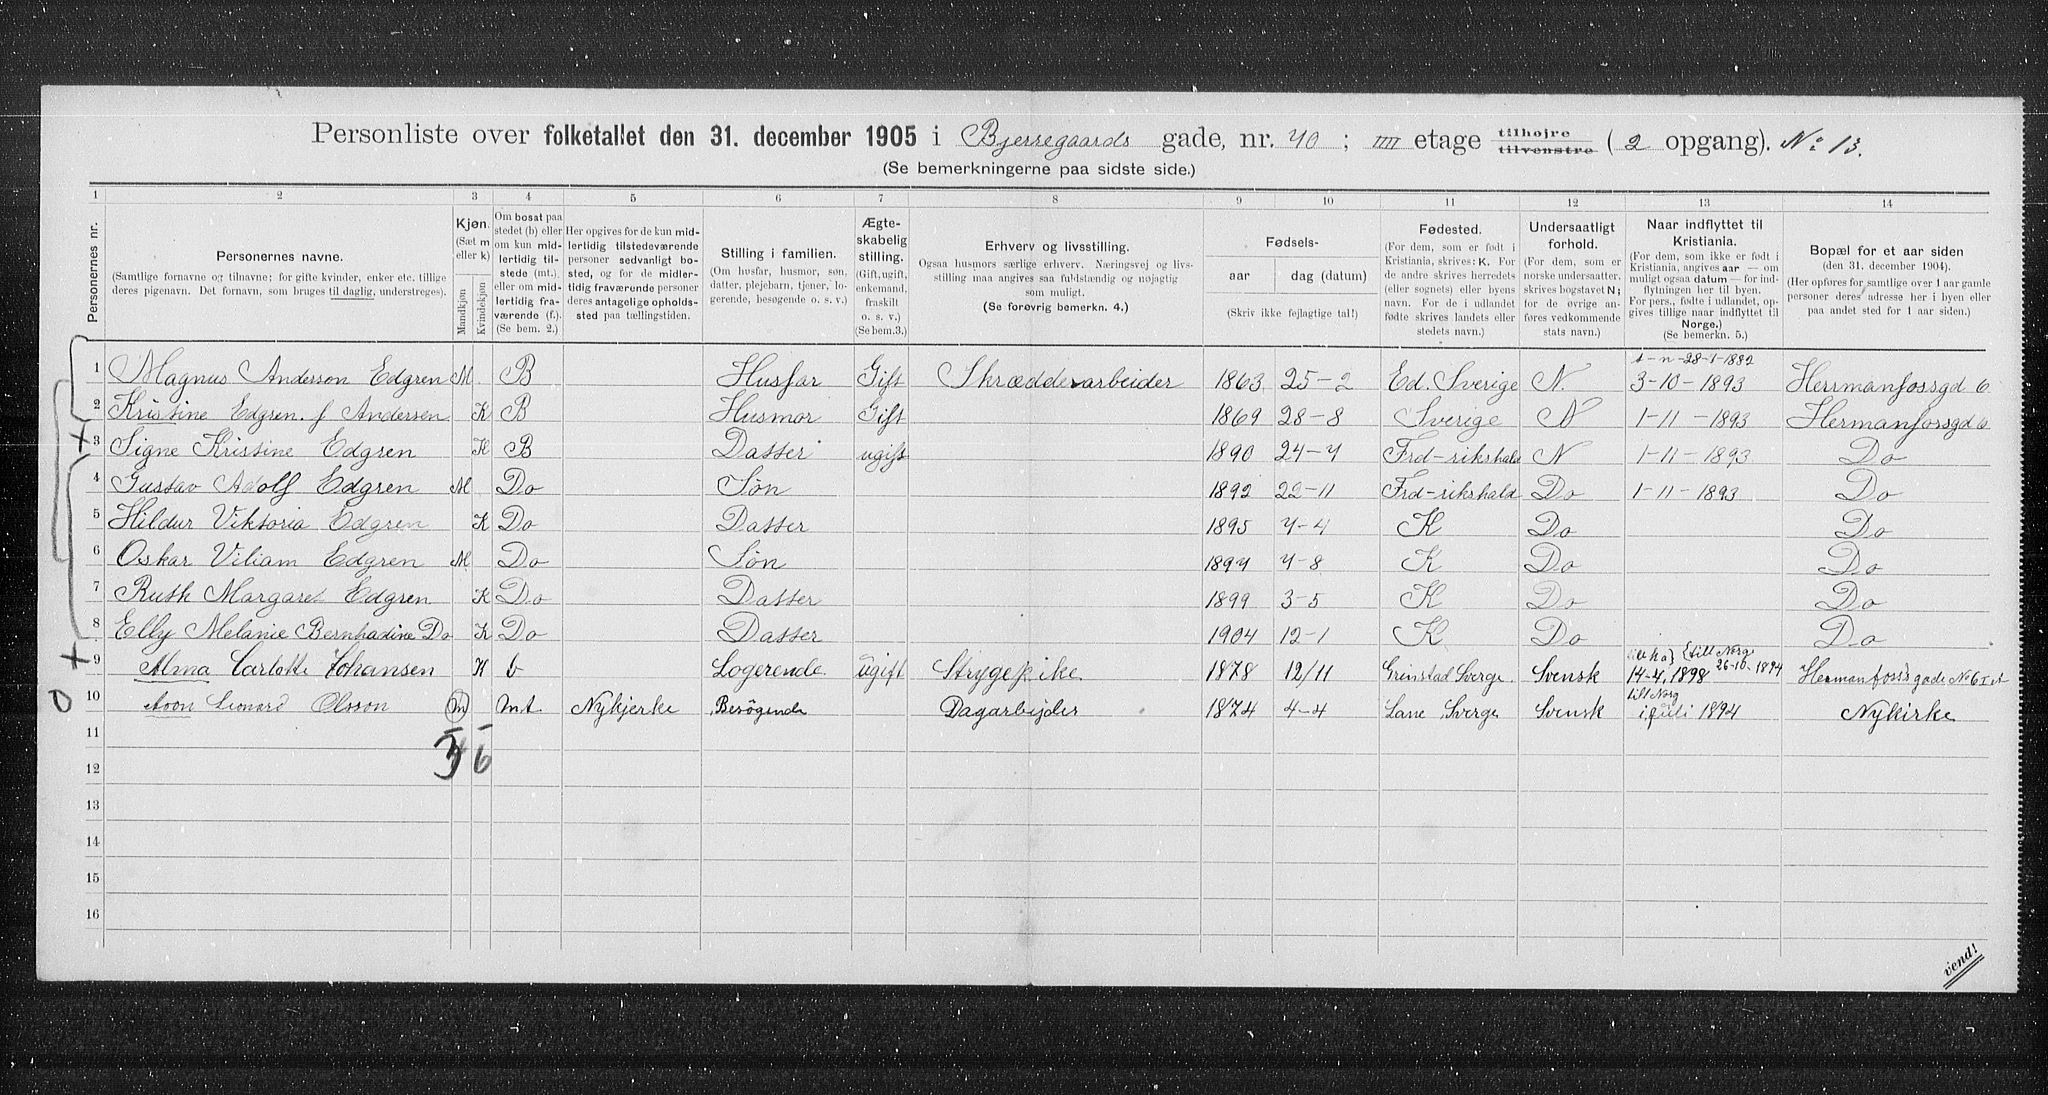 Personliste over folketallet den 31. december 1905 i Bjerregaards gade, nr. 40 ; IIII etage tilhøjre tilvenstre ( 2 opgang). No 13.
(Se bemerkningerne paa sidste side.)
1 2 3 4 5 6 7 8 9 10 11 12 13 14
Personernes nr.
Personernes navne.
(Samtlige fornavne og tilnavne; for gifte kvinder, enker etc. tillige deres pigenavn. Det fornavn, som bruges til daglig, understreges).
Kjøn.
(Sæt m eller k)
Mandkjøn
Kvindekjøn
Om bosat paa stedet (b) eller om kun midlertidig tilstede (mt.) eller om midlertidig fraværende (f.) (Se bem. 2.)
Her opgives for de kun midlertidig tilstedeværende personer sedvanligt bosted, og for de midlertidig fraværende personer deres antagelige opholdssted paa tællingstiden.
Stilling i familien.
(Om husfar, husmor, søn, datter, plejebarn, tjener, logerende, besøgende o. s. v.)
Ægteskabelig stilling.
(Gift, ugift, enkemand, fraskilt o. s. v.) (Se bem.3.)
Erhverv og livsstilling.
Ogsaa husmors særlige erhverv. Næringsvej og livsstilling maa angives saa fuldstændig og nøjagtig som muligt.
(Se forøvrig bemerkn. 4.)
Fødsels-
aar dag (datum)
(Skriv ikke fejlagtige tal!)
Fødested.
(For dem, som er født i Kristiania, skrives: K. For de andre skrives herredets (eller sognets) eller byens navn. For de i udlandet fødte skrives landets eller stedets navn.)
Undersaatligt forhold.
(For dem, som er norske undersaatter, skrives bogstavet N; for de øvrige anføres vedkommende stats navn.)
Naar indflyttet til Kristiania.
(For dem, som ikke er født i Kristiania, angives aar — om muligt ogsaa datum — for indflytningen her til byen. For pers., fødte i udlandet, opgives tillige naar indflyttet til Norge.)
(Se bemerkn. 5.)
Bopæl for et aar siden
(den 31. december 1904.)
(Her opføres for samtlige over 1 aar gamle personer deres adresse her i byen eller paa andet sted for 1 aar siden.)
1 Magnus Anderson Edgren M. B Husfar Gift Skrædderarbeider 1863 25-2 Ed. Sverige N. 28-1-1882 3-10-1893 Herrmanfossgd 6
2 Kristine Edgren. f Andersen K B Husmor Gift 1869 28-8 Sverige N 1-11-1893 Hermanfossgd 6
3 Signe Kristine Edgren K B Datter ugift 1890 24-4 Frd-rikshald N 1-11-1893 Do
4 Gustav Adolf Edgren M Do Søn 1892 22-11 Frd-rikshald Do 1-11-1893 Do
5 Hildur Viktoria Edgren K Do Datter 1895 4-4 K Do Do
6 Oskar Viliam Edgren M Do Søn 1897 4-8 K Do Do
7 Ruth Margaret Edgren K Do Datter 1899 3-5 K Do Do
8 Elly Melanie Bernhadine Do K Do Datter 1904 12-1 K Do Do
9 Alma Carlotte Johansen K b Logerende ugift Strygepike 1878 12/11 Grinstad Sverge. Svensk 14-4, 1898 till Norge 26-10-1894 Hermanfossgade No 6 I et
10 Leonard Olsson m mt. Nykjerke Besøgende Dagarbejder 1874 4-4 Lane Sverge Svensk till Norg i juli 1894 Nykirke
11 3 6
12
13
14
15
16
vend!